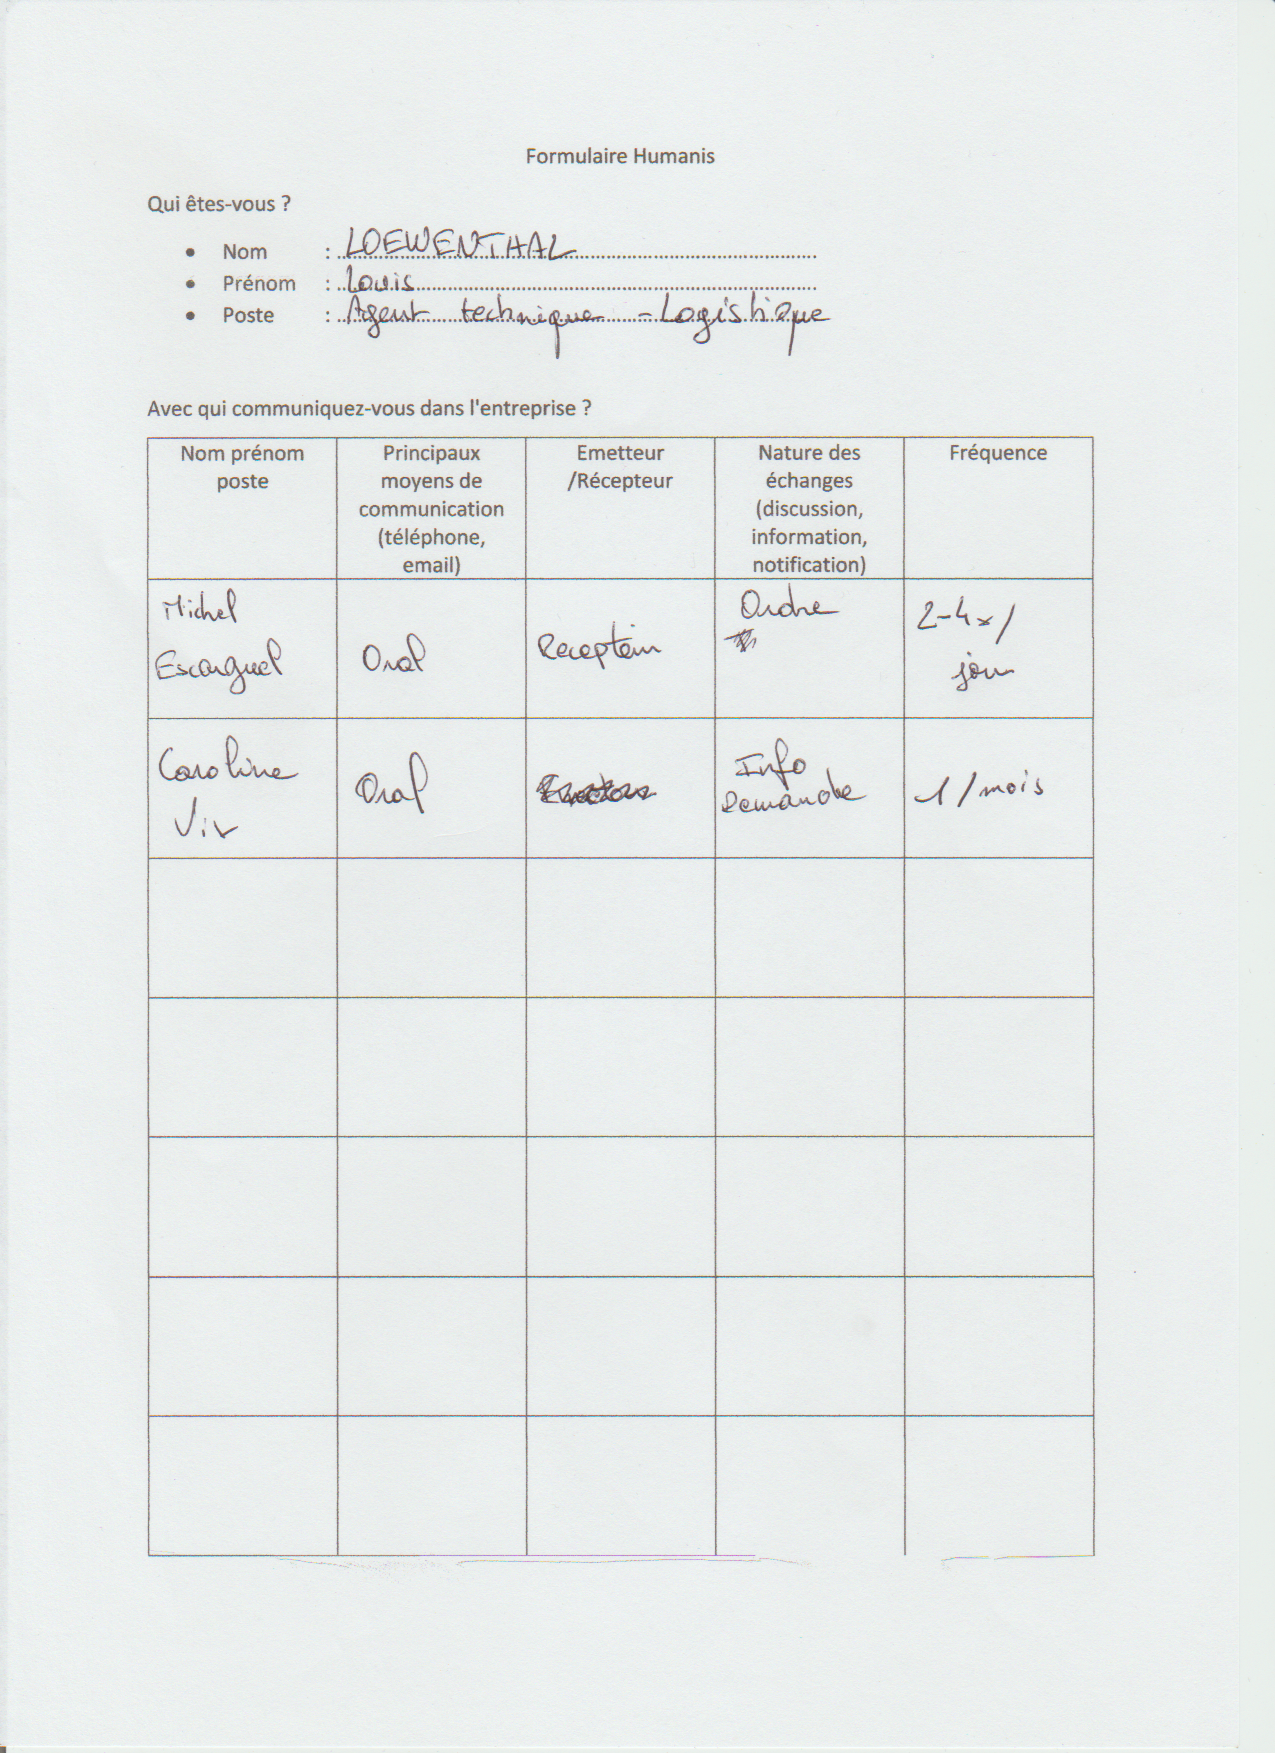 Formulaire Humanis
Qui êtes-vous ?
• Nom : LOEWENTHAL
• Prénom : Louis
• Poste : Agent technique - Logistique
Avec qui communiquez-vous dans l'entreprise ?
Nom prénom
poste
Principaux
moyens de
communication
(téléphone,
email)
Emetteur
/Récepteur
Nature des
échanges
(discussion,
information,
notification)
Fréquence
Michel
Escarguel
Oral
Ordre
2-4x/
jour
Caroline
Vix
Oral
Info
Demande
1/mois